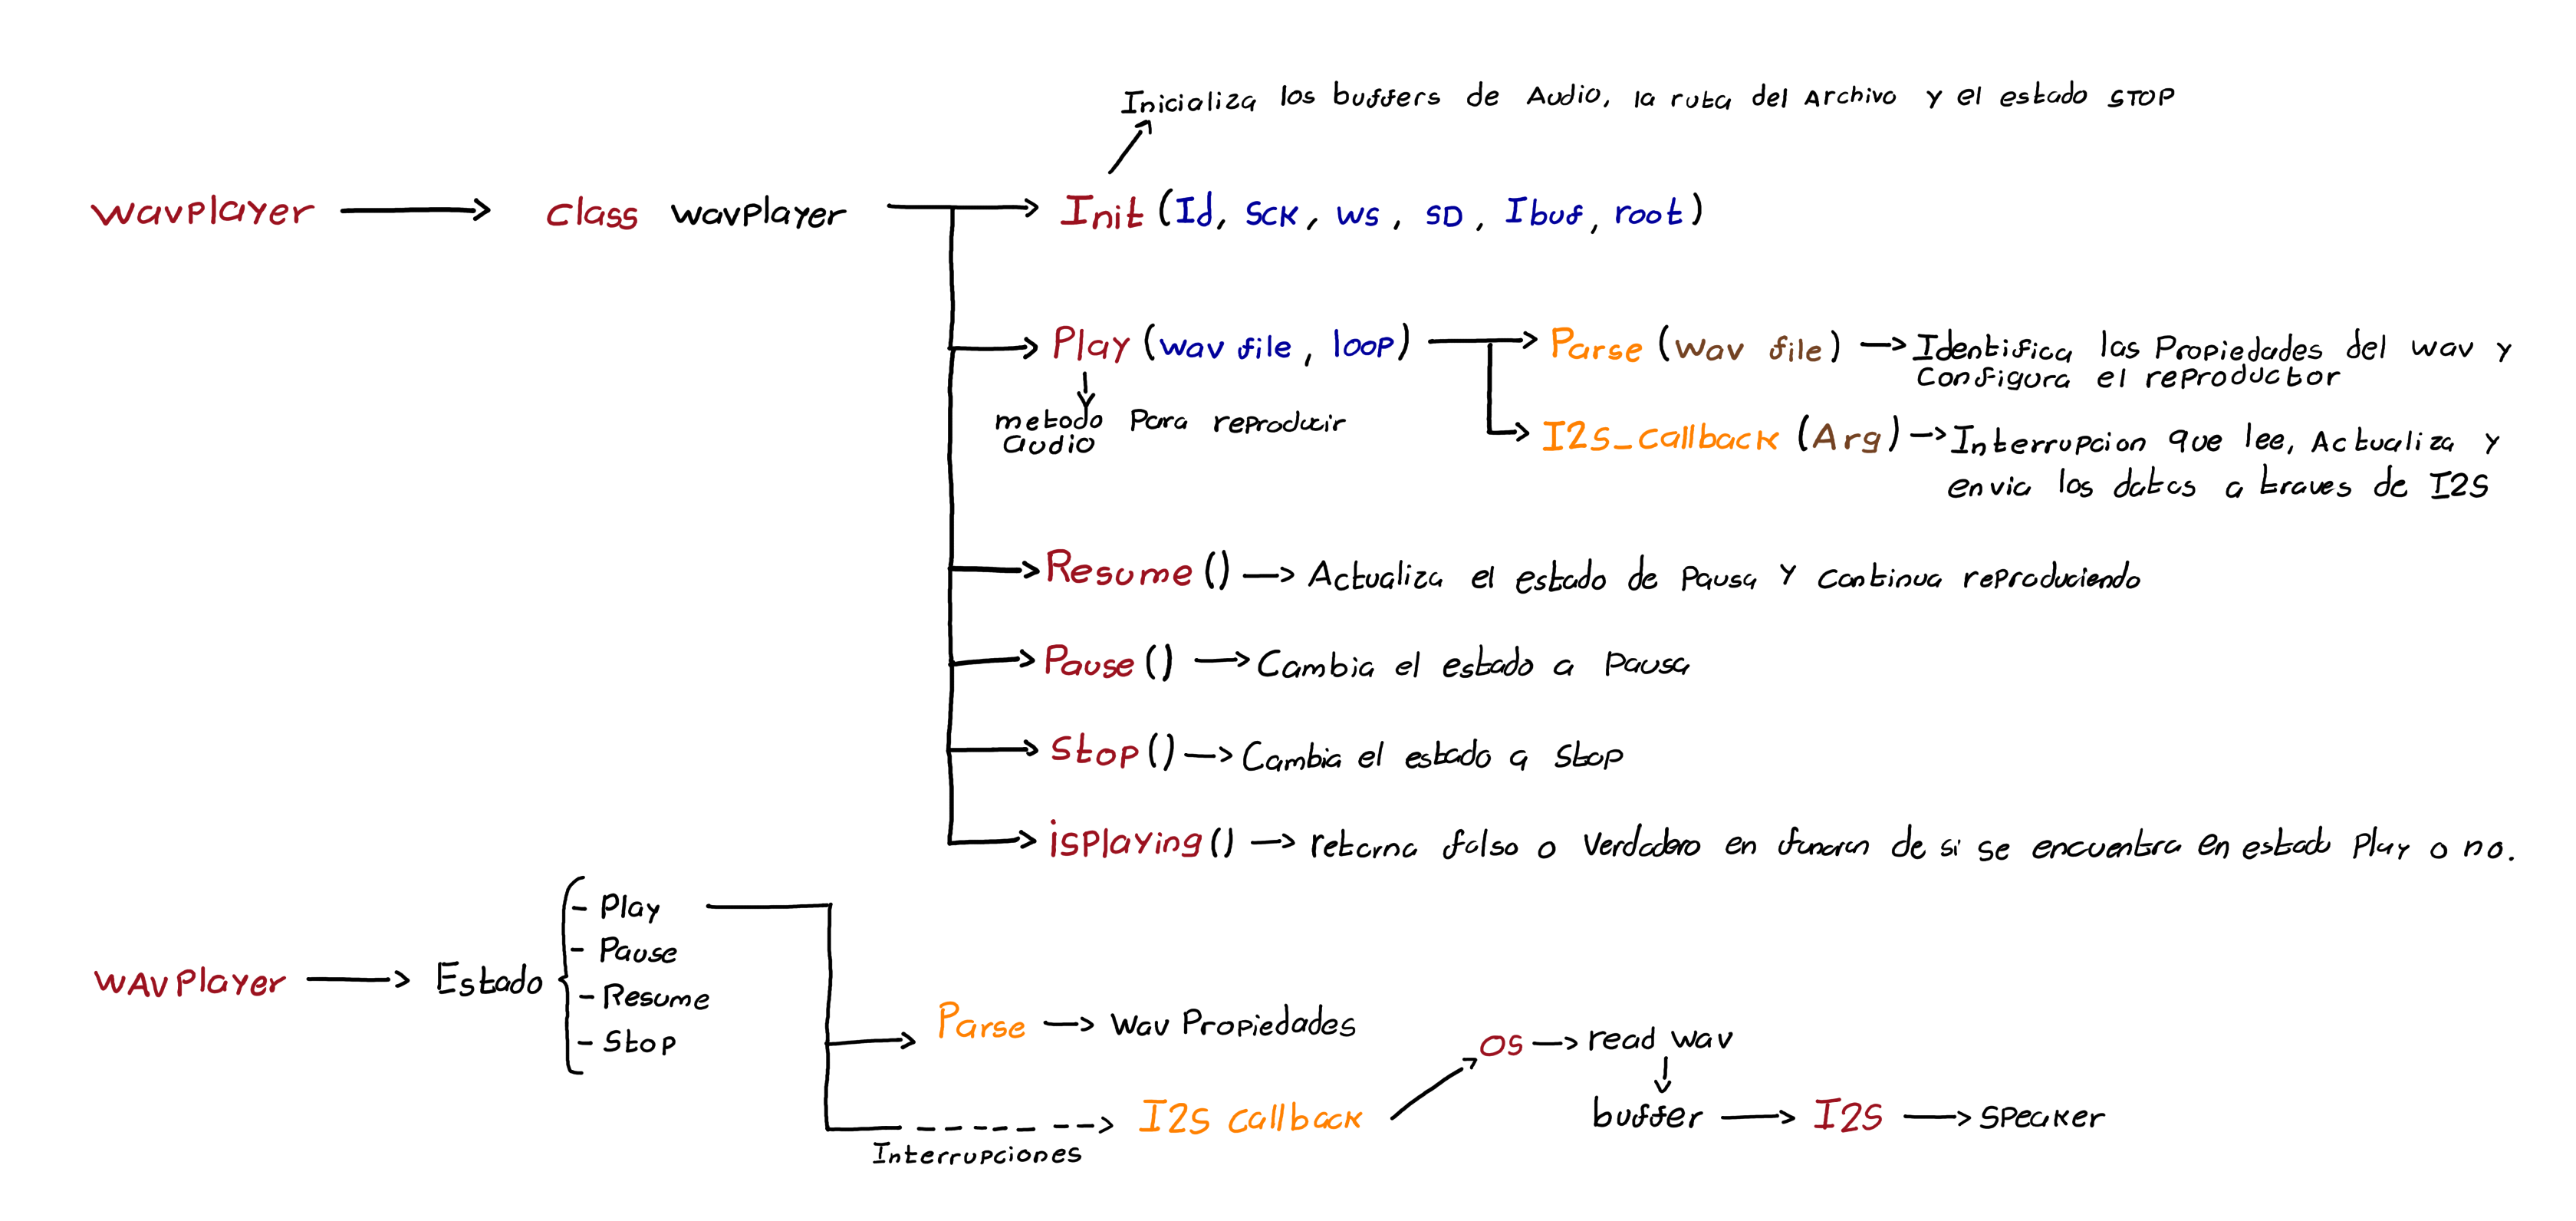 Inicializa los buffers de Audio, la ruta del Archivo y el estado STOP
wavPlayer → class wavPlayer → Init (Id, SCK, WS, SD, Ibuf, root)
Play (wav file, loop) → Parse (wav file) → Identifica las Propiedades del wav y
Configura el reproductor
metodo Para reproducir
audio
I2S_callback (Arg) → Interrupcion que lee, Actualiza y
envia los datos a traves de I2S
Resume () → Actualiza el estado de Pausa y continua reproduciendo
Pause () → Cambia el estado a Pausa
Stop () → Cambia el estado a Stop
isPlaying () → retorna falso o Verdadero en funcion de si se encuentra en estado Play o no.
WAVPlayer → Estado
- Play
- Pause
- Resume
- Stop
Parse → Wav Propiedades
Interrupciones
I2S callback
OS → read wav
buffer → I2S → Speaker